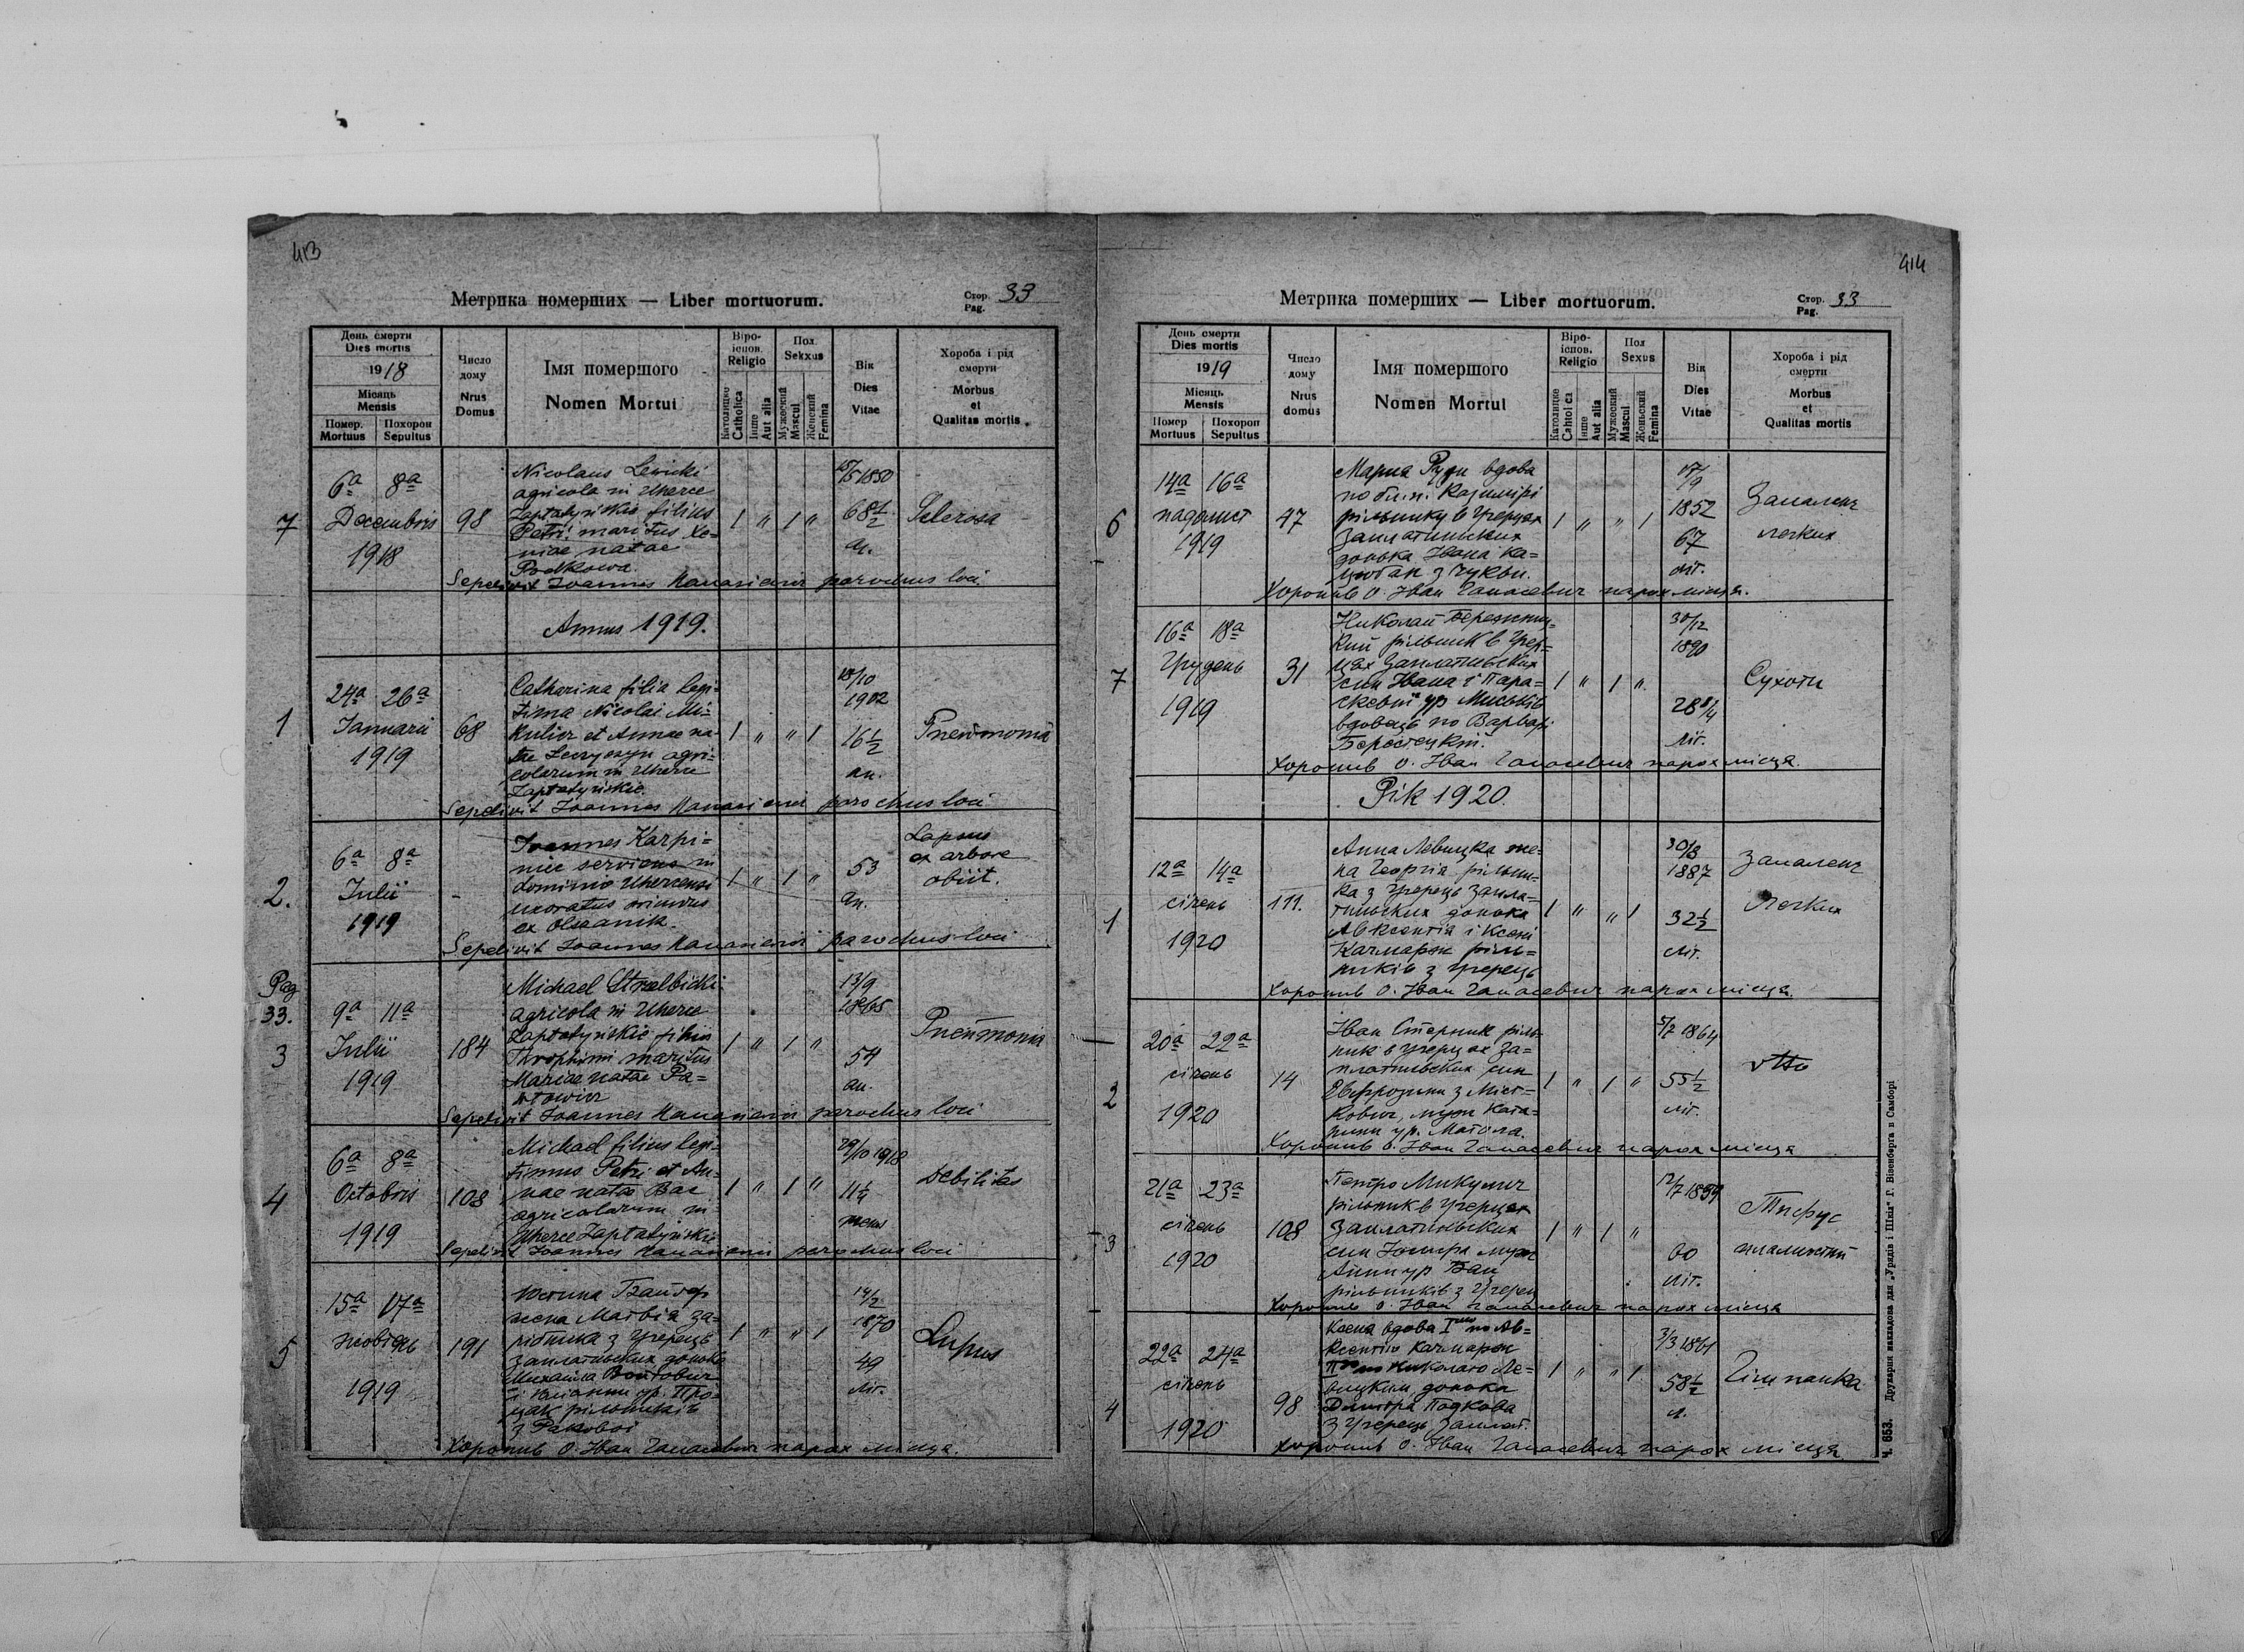 413
Метрика померших — Liber mortuorum.
Стор. Pag. 33
День смерти
Dies mortis
1918
Місяць
Mensis
Помер. Похорон
Mortuus Sepultus
Число
дому
Nrus
Domus
Імя помершого
Nomen Mortui
Віро-
ісповг.
Religio
Католицке
Catholica
Інше
Aut alia
Пол
Sekxus
Мужеский
Mascul
Женьский
Femina
Вік
Dies
Vitae
Хороба і рід
смерти
Morbus
et
Qualitas mortis
7
6a 8a
Decembris
1918
98
Nicolaus Lewicki
agricola in Uherce
Zaptatyńskie filius
Petri maritus Xe=
niae natae
Podkowa.
1 " 1 "
1850
68 1/2
an.
Sclerosa
Sepelivit Joannes parochus loci
Annus 1919.
1
24a 26a
Januarii
1919
68
Catharina filia legi=
tima Nicolai Mi=
kulicz et Annae na=
tae agri=
colarum in Uherce
Zaptatyńskie.
1 " " 1
18/10
1902
16 1/2
an.
Pneumonia
Sepelivit Joannes parochus loci
2.
6a 8a
Julii
1919
-
Joannes Karpi=
niec serviens in
dominio Uhercensi
uxoratus oriundus
ex Olszanik.
1 " 1 "
53
an.
Lapsus
ex arbore
obiit.
Sepelivit Joannes parochus loci
Pag
33.
3
9a 11a
Julii
1919
184
Michael Strzelbicki
agricola in Uherce
Zaptatyńskie filius
Throphimi maritus
Mariae natae Pa=
wtowicz
1 " 1 "
13/9
1865
54
an.
Pneumonia
Sepelivit Joannes parochus loci
4
6a 8a
Octobris
1919
108
Michael filius legi=
timus Petri et An=
nae natae Bac
agricolarum in
Uherce Zaptatyńskie
1 " 1 "
29/10 1918
11 1/4
mens
Debilitas
Sepelivit Joannes parochus loci
5
15a 17a
жовтень
1919
191
жена Матвія за=
рібника з Угерець
заплатиньских донька
Михайла Войтович
і ур. Про=
цак рільників
з Ракової
1 " " 1
14/2
1870
49
літ.
Lupus
Хоронив о. Іван парох місця.
414
Метрика померших — Liber mortuorum.
Стор. Pag. 33
День смерти
Dies mortis
1919
Місяць
Mensis
Помер Похорон
Mortuus Sepultus
Число
дому
Nrus
domus
Імя помершого
Nomen Mortui
Віро-
ісповг.
Religio
Католицке
Cahtolica
Інше
Aut alia
Пол
Sexus
Мужеский
Mascul
Женьский
Femina
Вік
Dies
Vitae
Хороба і рід
смерти
Morbus
et
Qualitas mortis
6
14a 16a
падолист
1919
47
Мария вдова
по бл.п. Казимірі
рільнику в Угерцях
Заплатиньских
донька Івана Ка=
з Чукви.
1 " " 1
17/9
1852
67
літ.
Запаленє
легких
Хоронив о. Іван парох місця.
7
16a 18a
Грудень
1919
31
Николай Бережниц=
кий рільник в Угер=
цях Заплатиньских
син Ивана і Пара=
скевиї ур Миськів
вдовець по Варварі
Берестецкій.
1 " 1 "
30/12
1890
28 3/4
літ.
Сухоти
Хоронив о. Іван парох місця.
Рік 1920.
1
12a 14a
січень
1920
111.
Анна Левицка же=
на Георгія рільни=
ка з Угерець Запла=
тиньских донька
Авксентія і Ксені
Качмарик ріль=
ників з Угерець
1 " " 1
30/3
1887
32 1/2
літ.
Запаленє
легких
Хоронив о. Іван парох місця.
2
20a 22a
січень
1920
14
Іван Стерник ріль=
ник в Угерцях За=
платиньских син
Евфрозини з Міст=
кович, муж Ката=
рини ур. Матола.
1 " 1 "
5/2 1864
55 1/2
літ.
Хоронив о. Іван парох місця
3
21a 23a
січень
1920
108
Петро Микулич
рільник в Угерцях
Заплатиньских
син Йосифа муж
Анни ур Бац
рільників з Угерец
1 " 1 "
12/7 1859
60
літ.
Тифус
плямистий
Хоронив о. Іван парох місця
4
22a 24a
січень
1920
98
Ксена вдова І по Ав=
ксентію Качмарик
ІІ по Николаю Ле=
вицким, донька
Дмитра Подкова
з Угерець Заплат.
1 " " 1
3/3 1861
58 1/2
л.
Гішпанка
Хоронив о. Іван парох місця
Ч. 653. Друкарня накладова для „Урядів і Шкіл" Г. Візенберга в Самборі